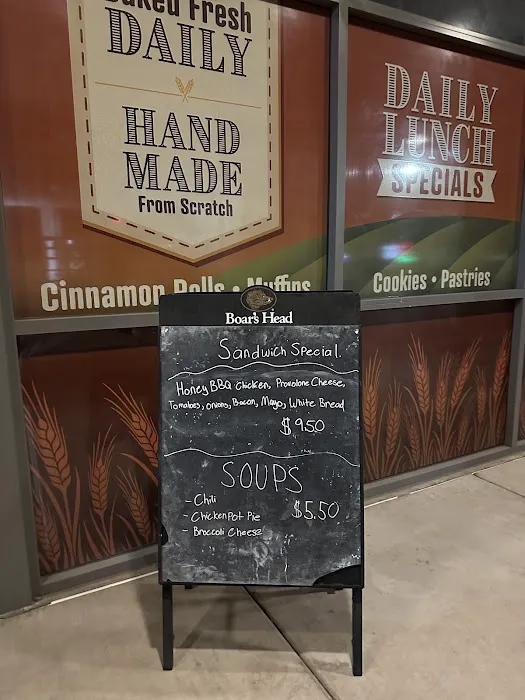 Baked Fresh
DAILY
HAND
MADE
From Scratch
DAILY
LUNCH
SPECIALS
Cinnamon Rolls • Muffins
Cookies • Pastries
Boar's Head
Sandwich Special.
Honey BBQ Chicken, Provolone Cheese,
Tomatoes, onions, Bacon, Mayo, White Bread
$9.50
SOUPS
- Chili
- Chicken Pot Pie
- Broccoli Cheese
$5.50